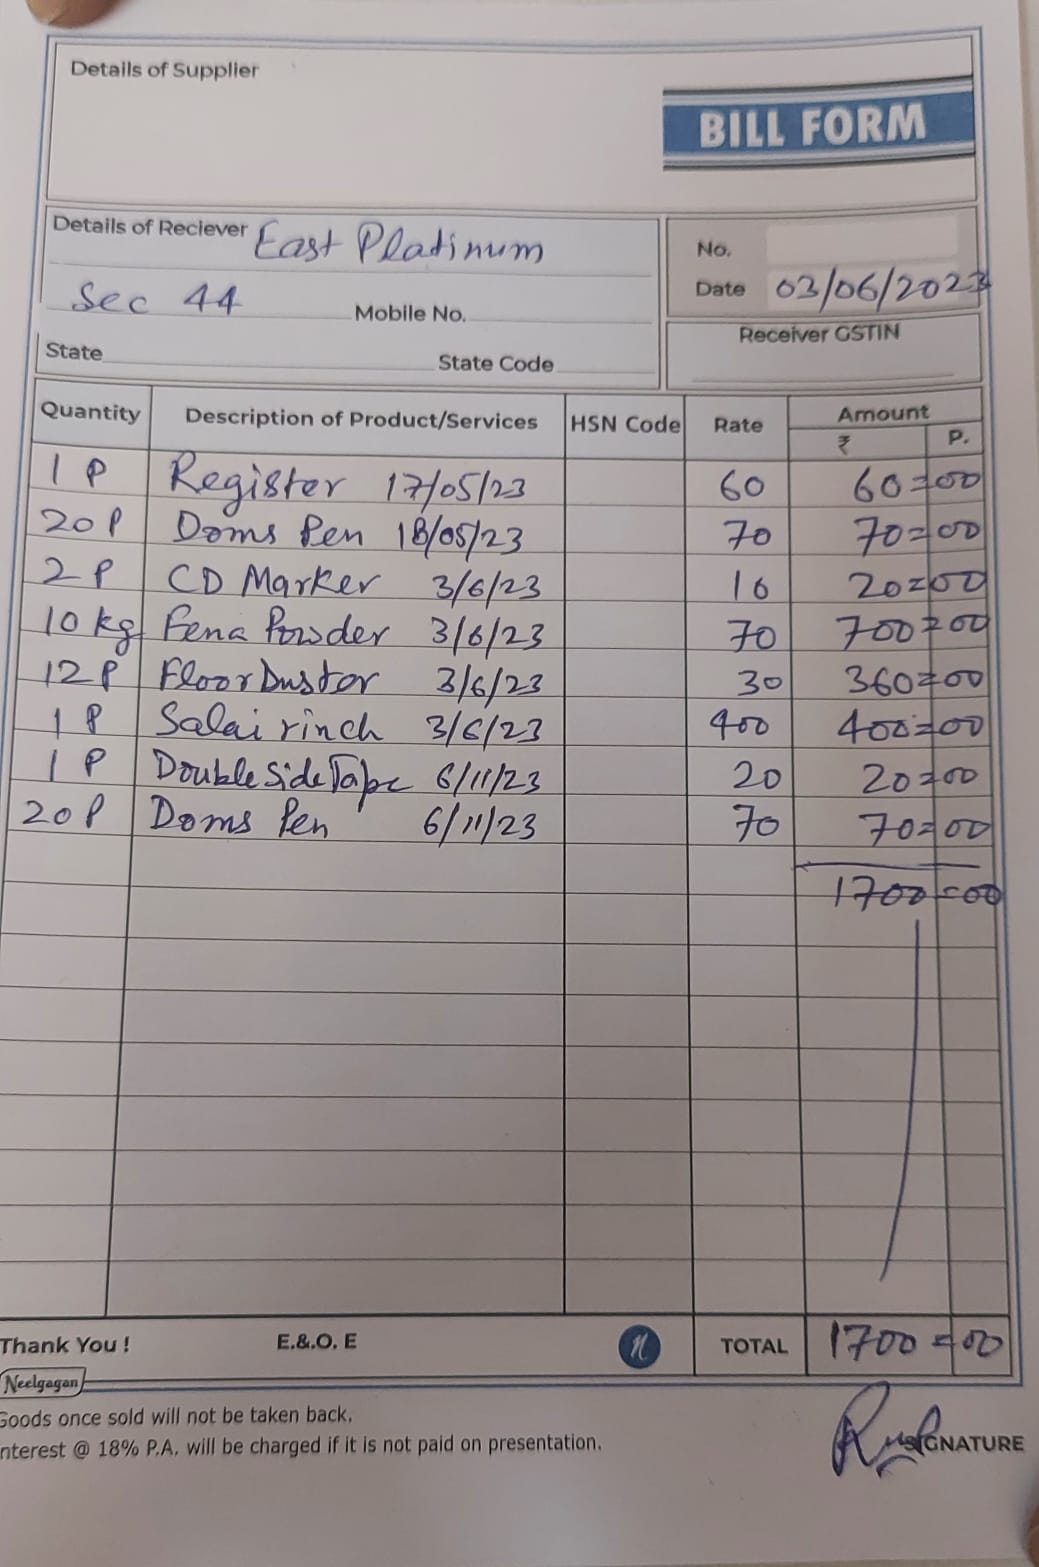 Details of Supplier
BILL FORM
Details of Reciever East Platinum
Sec 44 Mobile No.
State State Code
No.
Date 03/06/2023
Receiver GSTIN
Quantity Description of Product/Services HSN Code Rate Amount
₹ P.
1 P Register 17/05/23 60 60=00
20 P Doms Pen 18/05/23 70 70=00
2 P CD Marker 3/6/23 10 20=00
10 kg Fena Powder 3/6/23 70 700=00
12 P Floor Dustor 3/6/23 30 360=00
1 P Salai rinch 3/6/23 400 400=00
1 P Double Side Tape 6/11/23 20 20=00
20 P Doms Pen 6/11/23 70 70=00
1700=00
Thank You ! E.&.O. E n TOTAL 1700=00
Neelgagan
Goods once sold will not be taken back.
Interest @ 18% P.A. will be charged if it is not paid on presentation.
SIGNATURE